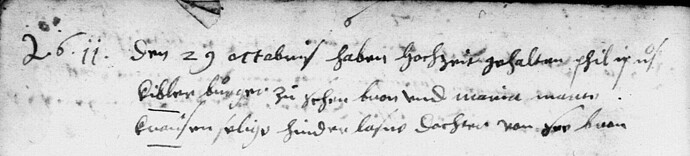 26.11. den 29 octobris haben hochzeit gehalten philipus
Kibler burger zu schen bron und maria
Kransen selige hinder lasne dochter von bron